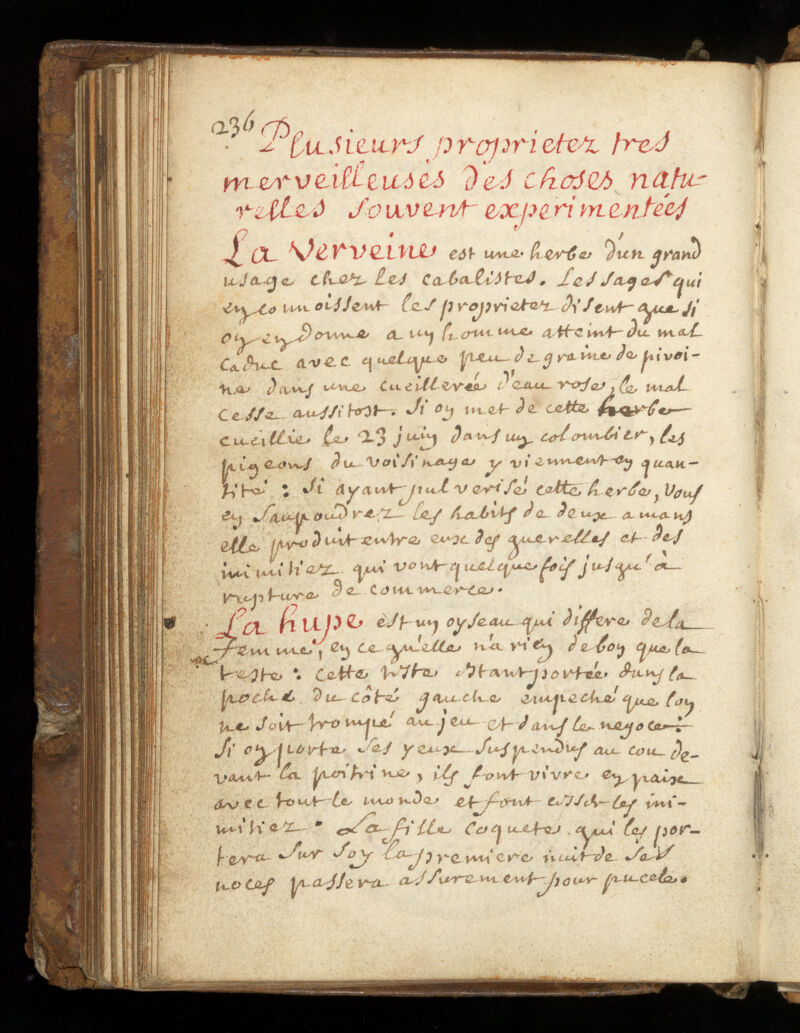 236
Plusieurs proprietez tres
merveilleuses des choses natu-
relles souvent experimentées
La Verveine est une herbe d'un grand
usage chez les cabalistes. Les sages qui
en connoissent les proprietez disent que si
on en donne a un homme atteint du mal
caduc avec quelque peu de graine de pivoi-
ne dans une cueillerée d'eau rose, le mal
cesse aussitost. Si on met de cette herbe
cueillie le 23 juin dans un colombier, les
pigeons du voisinage y viennent en quan-
tité : si ayant pulverisé cette herbe, vous
en saupoudrez les habits de deux amans
elle produit entre eux des querelles et des
inimitiez qui vont quelque fois jusqu'à
rupture de commerce.
La hupe est un oyseau qui differe de la
femme, en ce qu'elle n'a rien de bon que la
teste : cette teste etant portée dans la
poche du côté gauche empeche que lon
ne soit trompé au jeu et dans le negoce :
Si on porte ses yeux suspendus au cou de-
vant la poitrine, ils font vivre en paix
avec tout le monde et font cesser les ini-
mitiez. La fille coquete qui les por-
tera sur soy la premiere nuit de ses
noces passera assurement pour pucele.